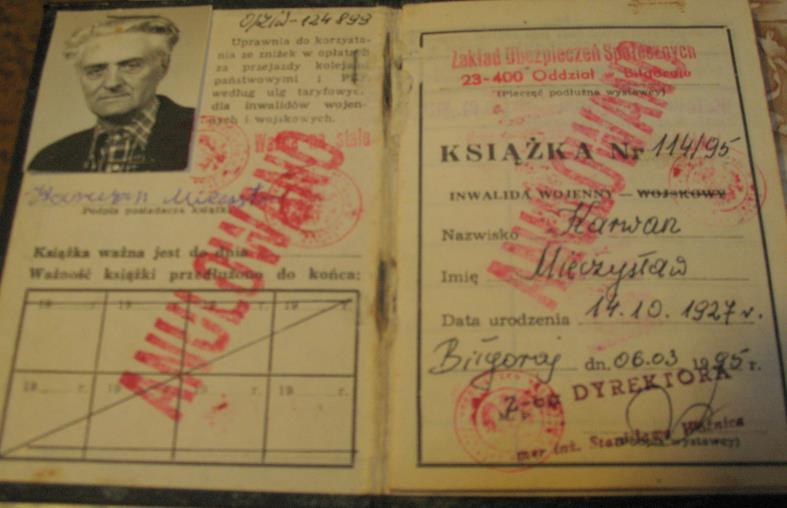 O/ZIW-124899
Uprawnia do korzysta-
nia ze zniżek w opłatach
za przejazdy kolejami
państwowymi i
według ulg taryfowych
dla inwalidów wojen-
nych i wojskowych.
Ważna na stałe
ANULOWANO
Podpis posiadacza książki
Książka ważna jest do dnia
Ważność książki przedłużono do końca:
19 r. 19 r. 19 r. 19 r.
19 r. 19 r. 19 r. 19 r.
Zakład Ubezpieczeń Społecznych
23-400 Oddział Biłgoraj
(Pieczęć podłużna wystawcy)
ANULOWANO
KSIĄŻKA Nr 114/95
INWALIDA WOJENNY — WOJSKOWY
Nazwisko Karwan
Imię Mieczysław
Data urodzenia 14.10.1927 r.
Biłgoraj dn. 06.03 1995 r.
Z-ca DYREKTORA
mgr inż. Stanisław Woźnica